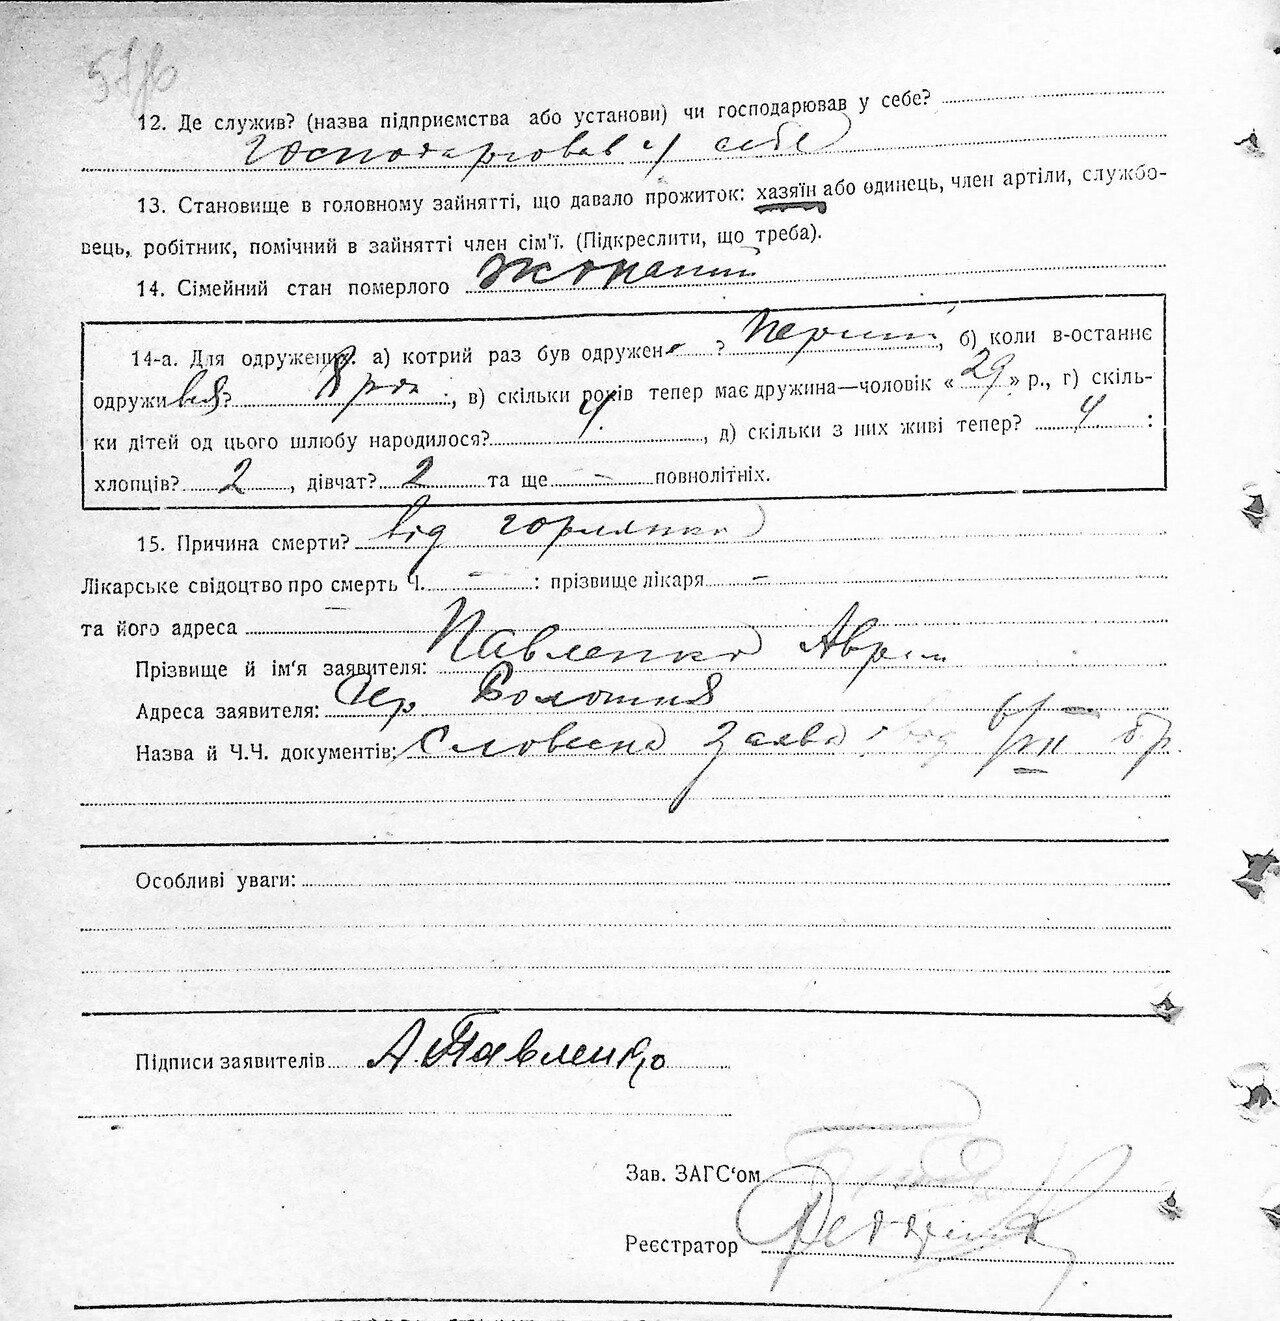 12. Де служив? (назва підприємства або установи) чи господарював у себе?
господарював у себе
13. Становище в головному зайнятті, що давало прожиток: хазяїн або одинець, член артілі, службо-
вець, робітник, помічний в зайнятті член сім'ї. (Підкреслити, що треба).
14. Сімейний стан померлого жонатий
14-а. Для одружених: а) котрий раз був одружен ? перший, б) коли в-останнє
одруживс я? 8 рок , в) скільки років тепер має дружина—чоловік « 29 » р., г) скіль-
ки дітей од цього шлюбу народилося? 4 , д) скільки з них живі тепер? 4 :
хлопців? 2 , дівчат? 2 та ще – повнолітніх.
15. Причина смерти? від
Лікарське свідоцтво про смерть Ч. – : прізвище лікаря –
та його адреса –
Прізвище й ім'я заявителя: Павленко Аврам
Адреса заявителя:
Назва й Ч.Ч. документів: Словесна заява від 6/VII б/р.
Особливі уваги:
Підписи заявителів А. Павленко
Зав. ЗАГС'ом
Реєстратор